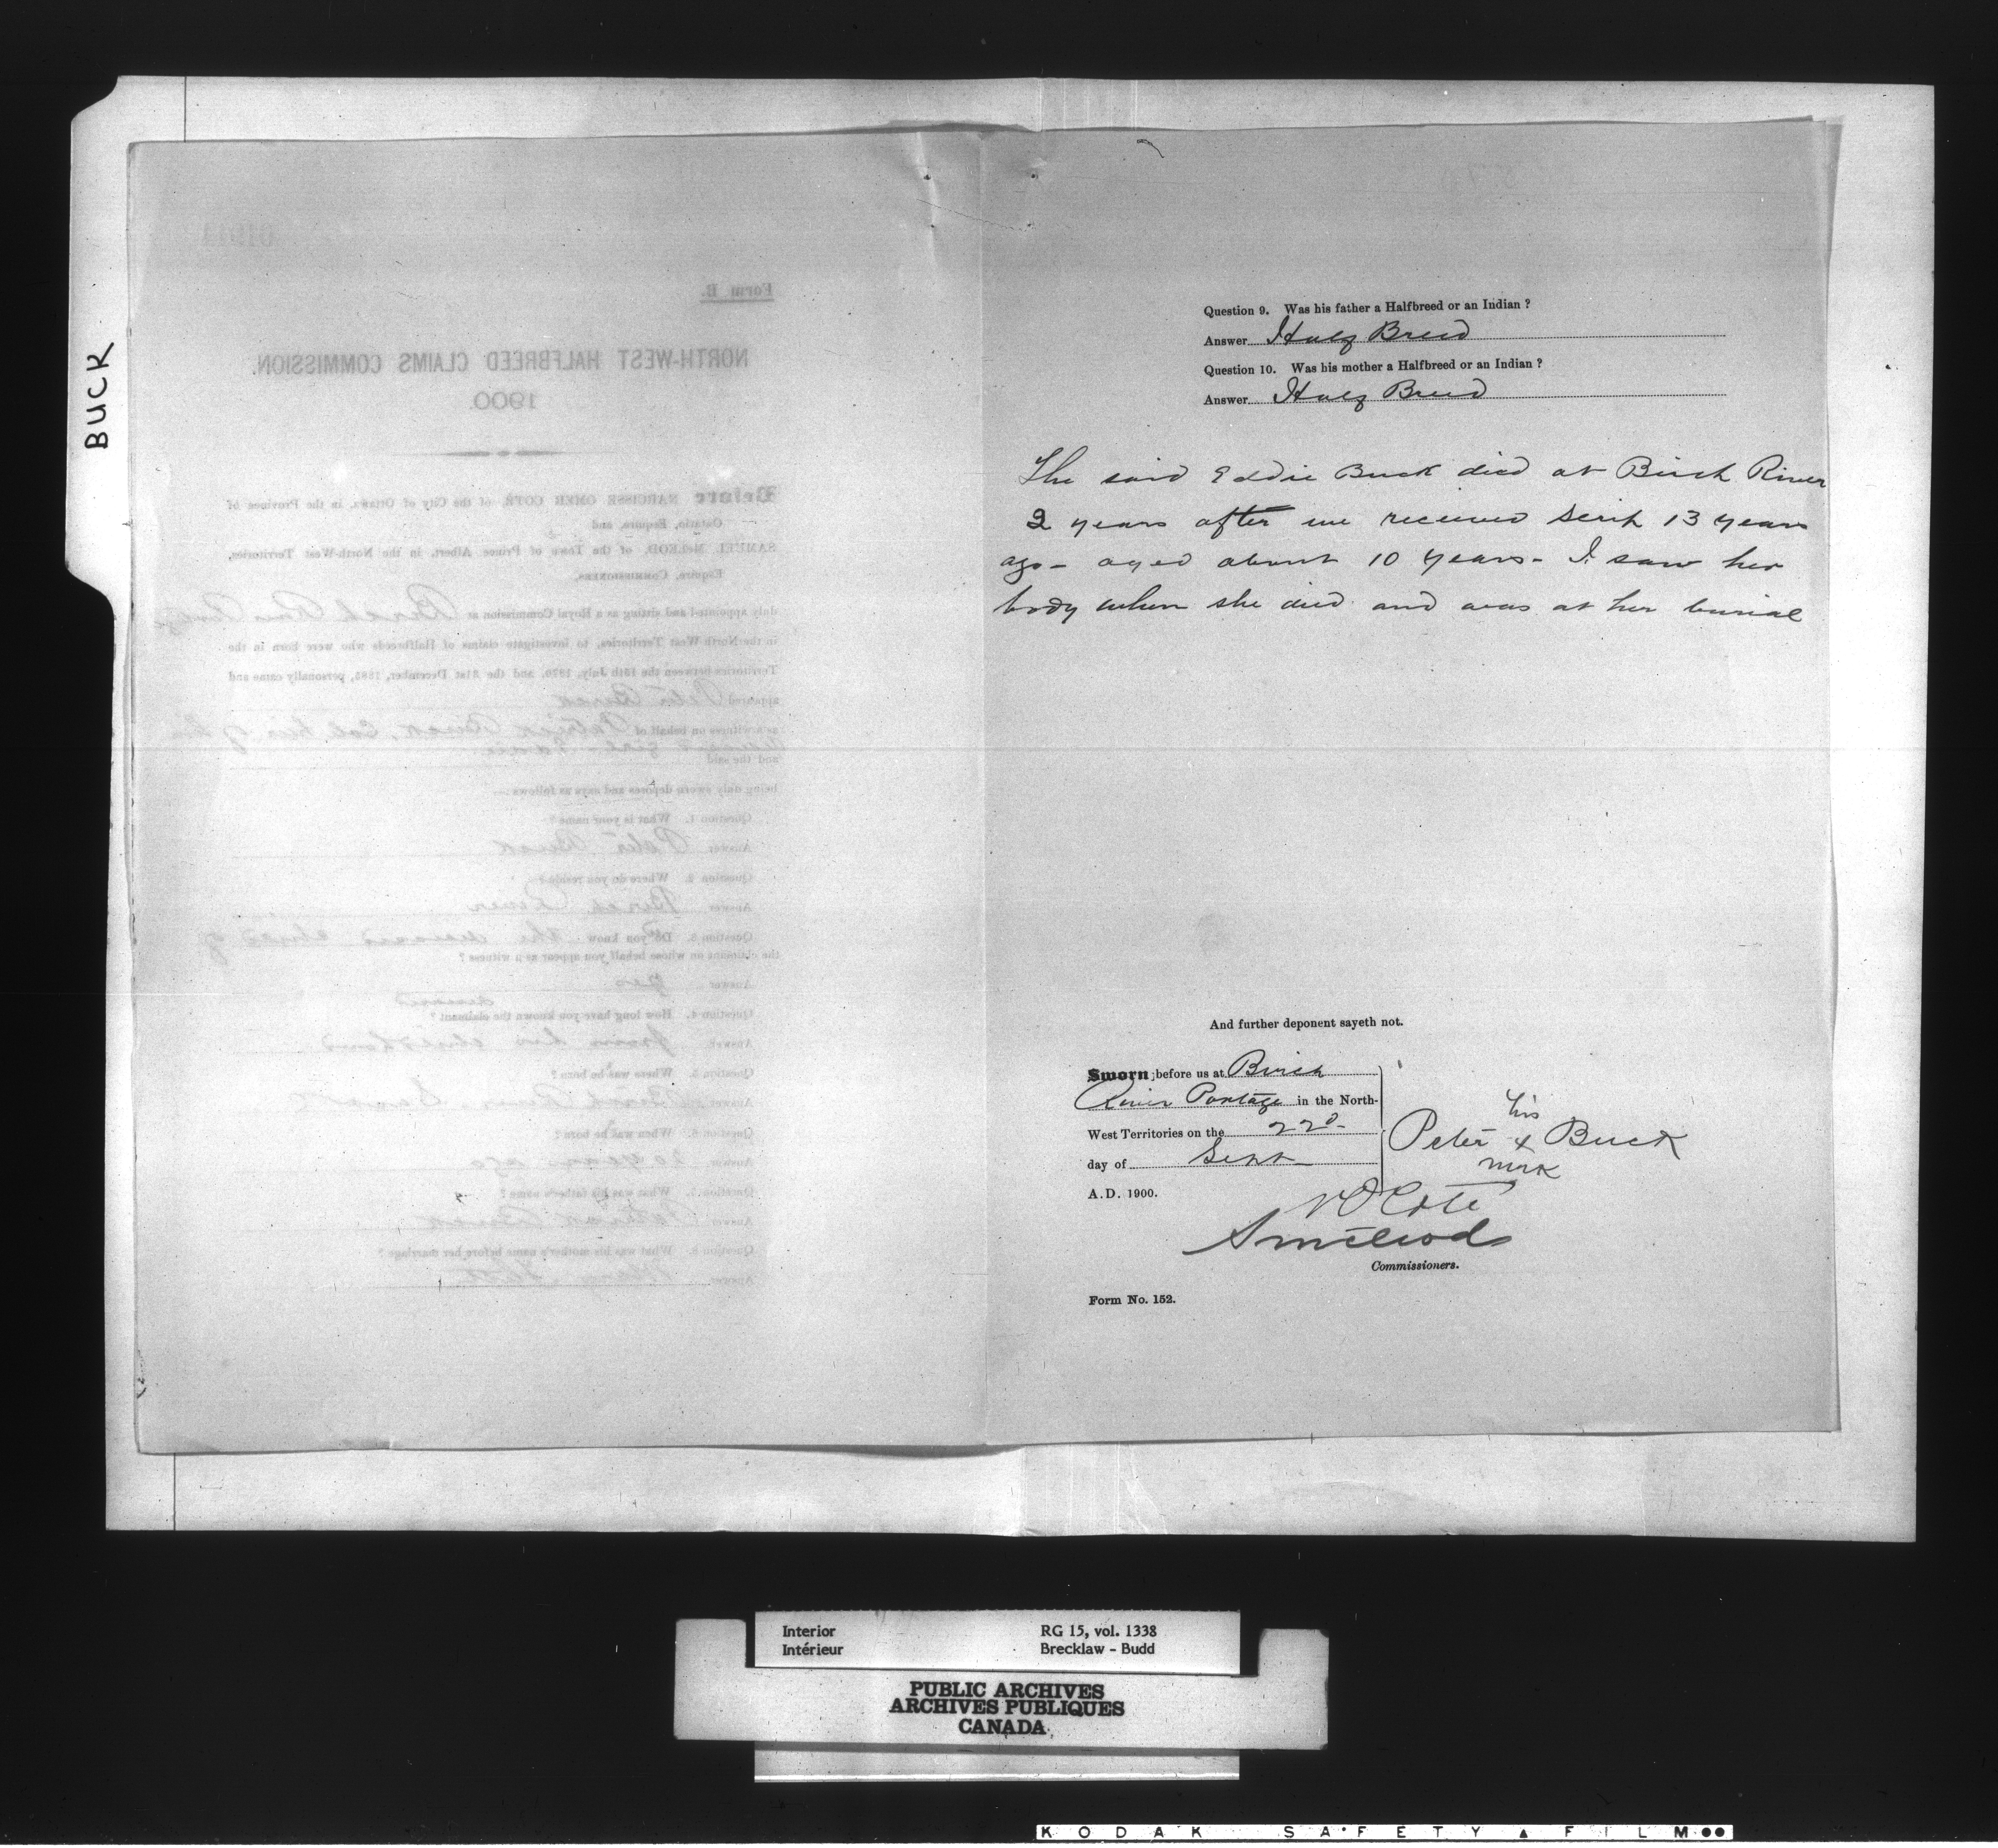 BUCK
01911
Form B.
NORTH-WEST HALFBREED CLAIMS COMMISSION.
1900.
Before NARCISSE OMER COTÉ, of the City of Ottawa, in the Province of
Ontario, Esquire, and
SAMUEL McLEOD, of the Town of Prince Albert, in the North-West Territories,
Esquire, COMMISSIONERS,
duly appointed and sitting as a Royal Commission at Birch River Portage
in the North West Territories, to investigate claims of Halfbreeds who were born in the
Territories between the 15th July, 1870, and the 31st December, 1885, personally came and
appeared Peter Buck
as a witness on behalf of Patrick Buck,
and the said
being duly sworn deposes and says as follows:—
Question 1. What is your name?
Answer Peter Buck
Question 2. Where do you reside?
Answer Birch River
Question 3. Do you know the deceased child of
the claimant on whose behalf you appear as a witness?
Answer yes
deceased
Question 4. How long have you known the claimant?
Answer from her childhood
Question 5. Where was he born?
Answer Birch River
Question 6. When was he born?
Answer 20 years ago
Question 7. What was his father's name?
Answer Patrick Buck
Question 8. What was his mother's name before her marriage?
Answer
Question 9. Was his father a Halfbreed or an Indian?
Answer Half Breed
Question 10. Was his mother a Halfbreed or an Indian?
Answer Half Breed
The said Eddie Buck died at Birch River
2 years after we received scrip 13 years
ago - aged about 10 years - I saw her
body when she died and was at her burial
And further deponent sayeth not.
Sworn before us at Birch
River Portage in the North-
West Territories on the 22d
day of Sept
A.D. 1900.
his
Peter x Buck
mark
N O Coté
S McLeod
Commissioners.
Form No. 152.
Interior RG 15, vol. 1338
Intérieur Brecklaw - Budd
PUBLIC ARCHIVES
ARCHIVES PUBLIQUES
CANADA
KODAK SAFETY FILM